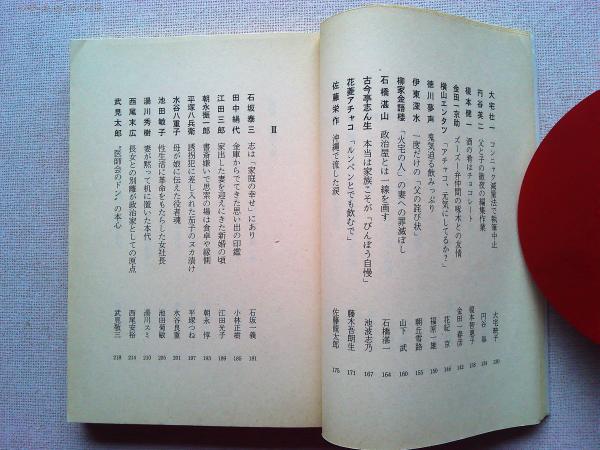 大宅壮一 コンニャク減量法で執筆中止 大宅映子 130
円谷英二 父と子の徹夜の編集作業 円谷 134
榎本健一 酒の肴はチョコレート 榎本智恵子 138
金田一京助 ズーズー弁仲間の啄木との友情 金田一春彦 142
横山エンタツ 「アチャコ、元気にしてるか?」 花紀京 146
徳川夢声 鬼気迫る飲みっぷり 福原一雄 150
伊東深水 一度だけの「父の詫び状」 朝丘雪路 155
柳家金語楼 「火宅の人」の妻への罪滅ぼし 山下武 160
石橋湛山 政治屋とは一線を画す 石橋湛一 164
古今亭志ん生 本当は家族こそが「びんぼう自慢」 池波志乃 167
花菱アチャコ 「ルンペンとでも飲むで」 藤木吾朗生 171
佐藤栄作 沖縄で流した涙 佐藤龍太郎 175
II
石坂泰三 志は「家庭の幸せ」にあり 石坂一義 181
田中絹代 金庫からでてきた思い出の印鑑 小林正樹 185
江田三郎 家出した妻を迎えにきた新婚の頃 江田光子 189
朝永振一郎 書斎嫌いで思索の場は食卓や縁側 朝永惇 193
平塚八兵衛 誘拐犯に差し入れた茄子のヌカ漬け 平塚つね 197
水谷八重子 母が娘に伝えた役者魂 水谷良重 201
池田敏子 性生活に革命をもたらした女社長 池田菊敏 206
湯川秀樹 妻が黙って机に置いた本代 湯川スミ 210
西尾末広 長女との別離が政治家としての原点 西尾安裕 214
武見太郎 “医師会のドン”の本心 武見敬三 218